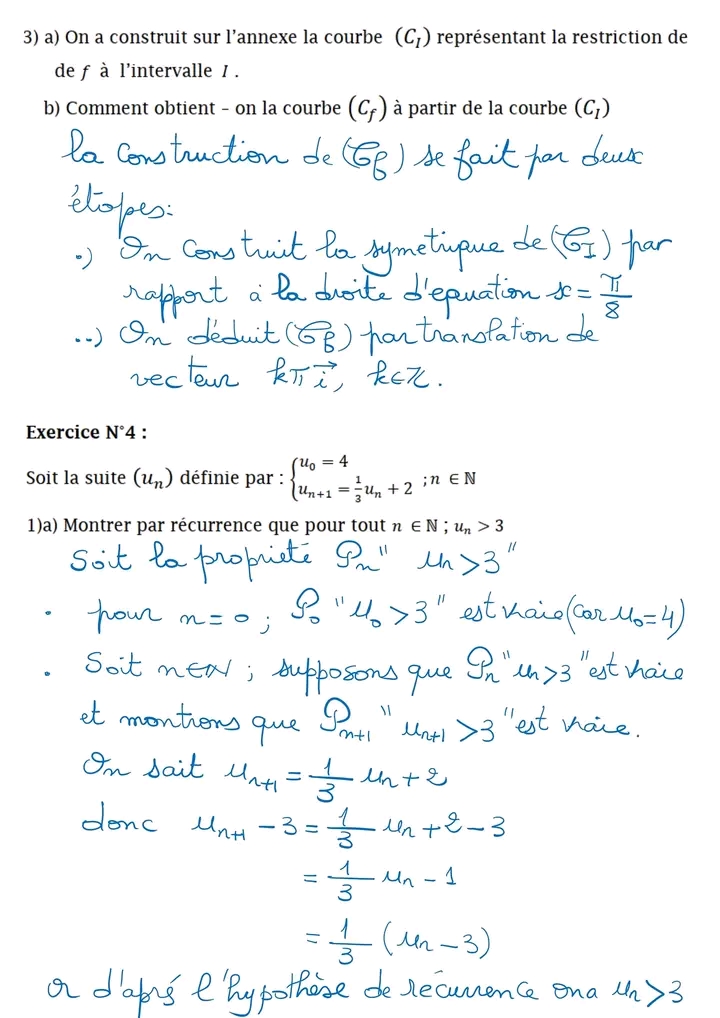 3) a) On a construit sur l'annexe la courbe (C_I) représentant la restriction de
de f à l'intervalle I .
b) Comment obtient - on la courbe (C_f) à partir de la courbe (C_I)
la Construction de (𝒞f) se fait par deux
étapes:
.) On Construit la symetrique de (𝒞_I) par
rapport à la droite d'equation x = π/8
..) On déduit (𝒞f) par translation de
vecteur kπ i⃗, k∈ℤ.
Exercice N°4 :
Soit la suite (u_n) définie par : { u_0 = 4
u_{n+1} = 1/3 u_n + 2 ; n ∈ ℕ
1)a) Montrer par récurrence que pour tout n ∈ ℕ ; u_n > 3
Soit la propriété P_n " u_n > 3 "
. pour n = 0 ; P_0 " u_0 > 3 " est vraie (car u_0 = 4)
. Soit n∈ℕ ; supposons que P_n " u_n > 3 " est vraie
et montrons que P_{n+1} " u_{n+1} > 3 " est vraie.
On sait u_{n+1} = 1/3 u_n + 2
donc u_{n+1} - 3 = 1/3 u_n + 2 - 3
= 1/3 u_n - 1
= 1/3 (u_n - 3)
or d'apré l'hypothèse de récurrence ona u_n > 3